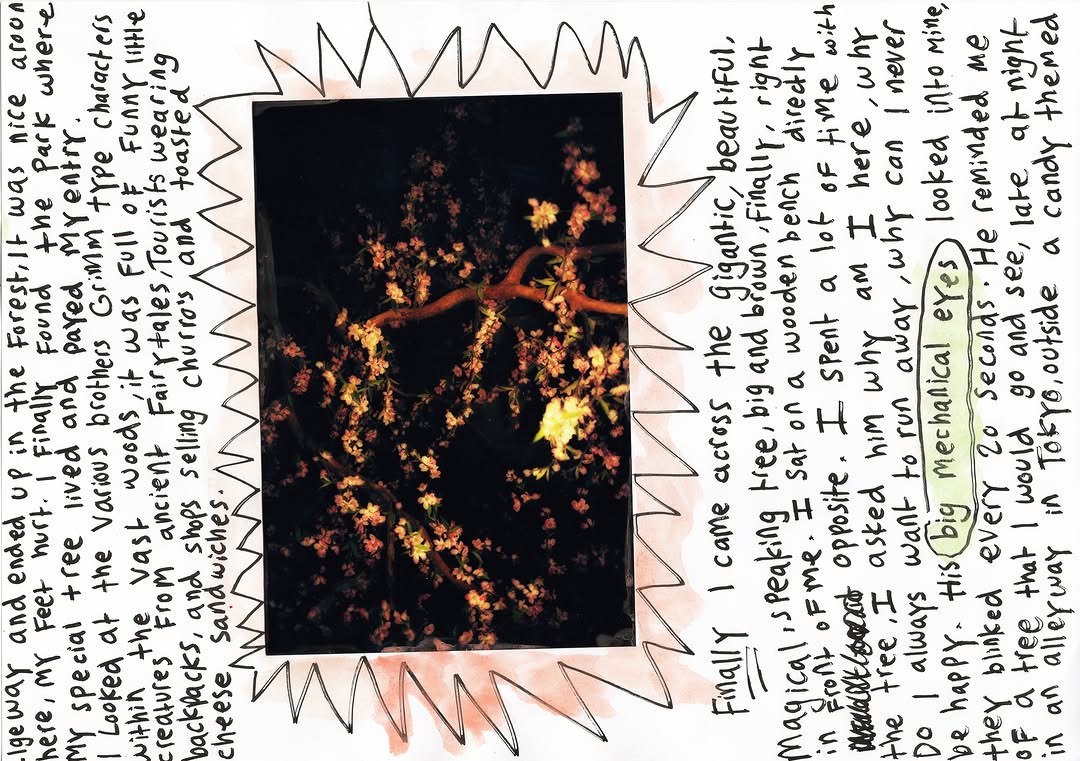 and ended up in the Forest, It was nice aroun
here, my Feet hurt. I Finally Found the Park where
My special tree lived and payed My entry.
I Looked at the Various brothers Grimm Type characters
within the vast woods, it was Full of Funny little
creatures From ancient Fairytales, Tourists wearing
backpacks, and shops selling churros and toasted
cheese sandwiches.
Finally I came across the gigantic, beautiful,
Magical, speaking tree, big and brown, Finally, right
in Front of me. I sat on a wooden bench directly
opposite. I spent a lot of time with
the tree, I asked him why am I here, why
Do I always want to run away, why can I never
be happy. this big mechanical eyes looked into mine,
they blinked every 20 seconds. He reminded me
of a tree that I would go and see, late at night
in an alleyway in Tokyo, outside a candy themed